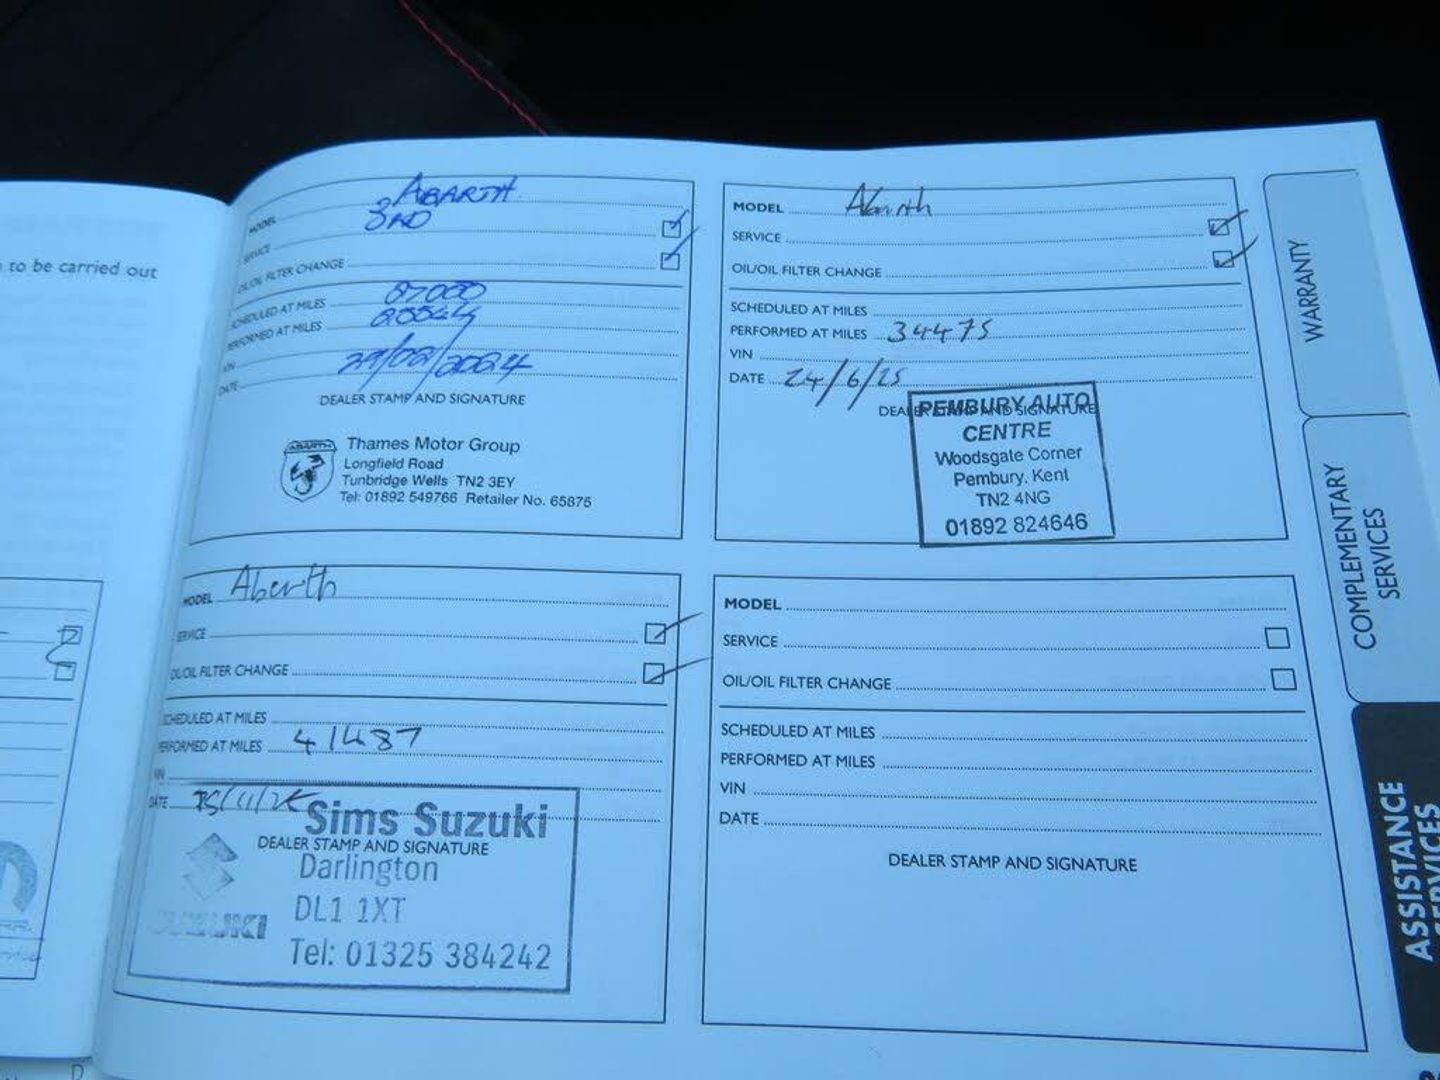 to be carried out
MODEL ABARTH
SERVICE 3RD
OIL/OIL FILTER CHANGE
SCHEDULED AT MILES 27000
PERFORMED AT MILES
VIN
DATE 29/02/2024
DEALER STAMP AND SIGNATURE
ABARTH
Thames Motor Group
Longfield Road
Tunbridge Wells TN2 3EY
Tel: 01892 549766 Retailer No. 65875
MODEL Abarth
SERVICE
OIL/OIL FILTER CHANGE
SCHEDULED AT MILES
PERFORMED AT MILES 34475
VIN
DATE 24/6/25
DEALER STAMP AND SIGNATURE
PEMBURY AUTO
CENTRE
Woodsgate Corner
Pembury, Kent
TN2 4NG
01892 824646
MODEL Abarth
SERVICE
OIL/OIL FILTER CHANGE
SCHEDULED AT MILES
PERFORMED AT MILES 41487
VIN
DATE
Sims Suzuki
DEALER STAMP AND SIGNATURE
Darlington
SUZUKI
DL1 1XT
Tel: 01325 384242
MODEL
SERVICE
OIL/OIL FILTER CHANGE
SCHEDULED AT MILES
PERFORMED AT MILES
VIN
DATE
DEALER STAMP AND SIGNATURE
WARRANTY
COMPLEMENTARY
SERVICES
ASSISTANCE
SERVICES